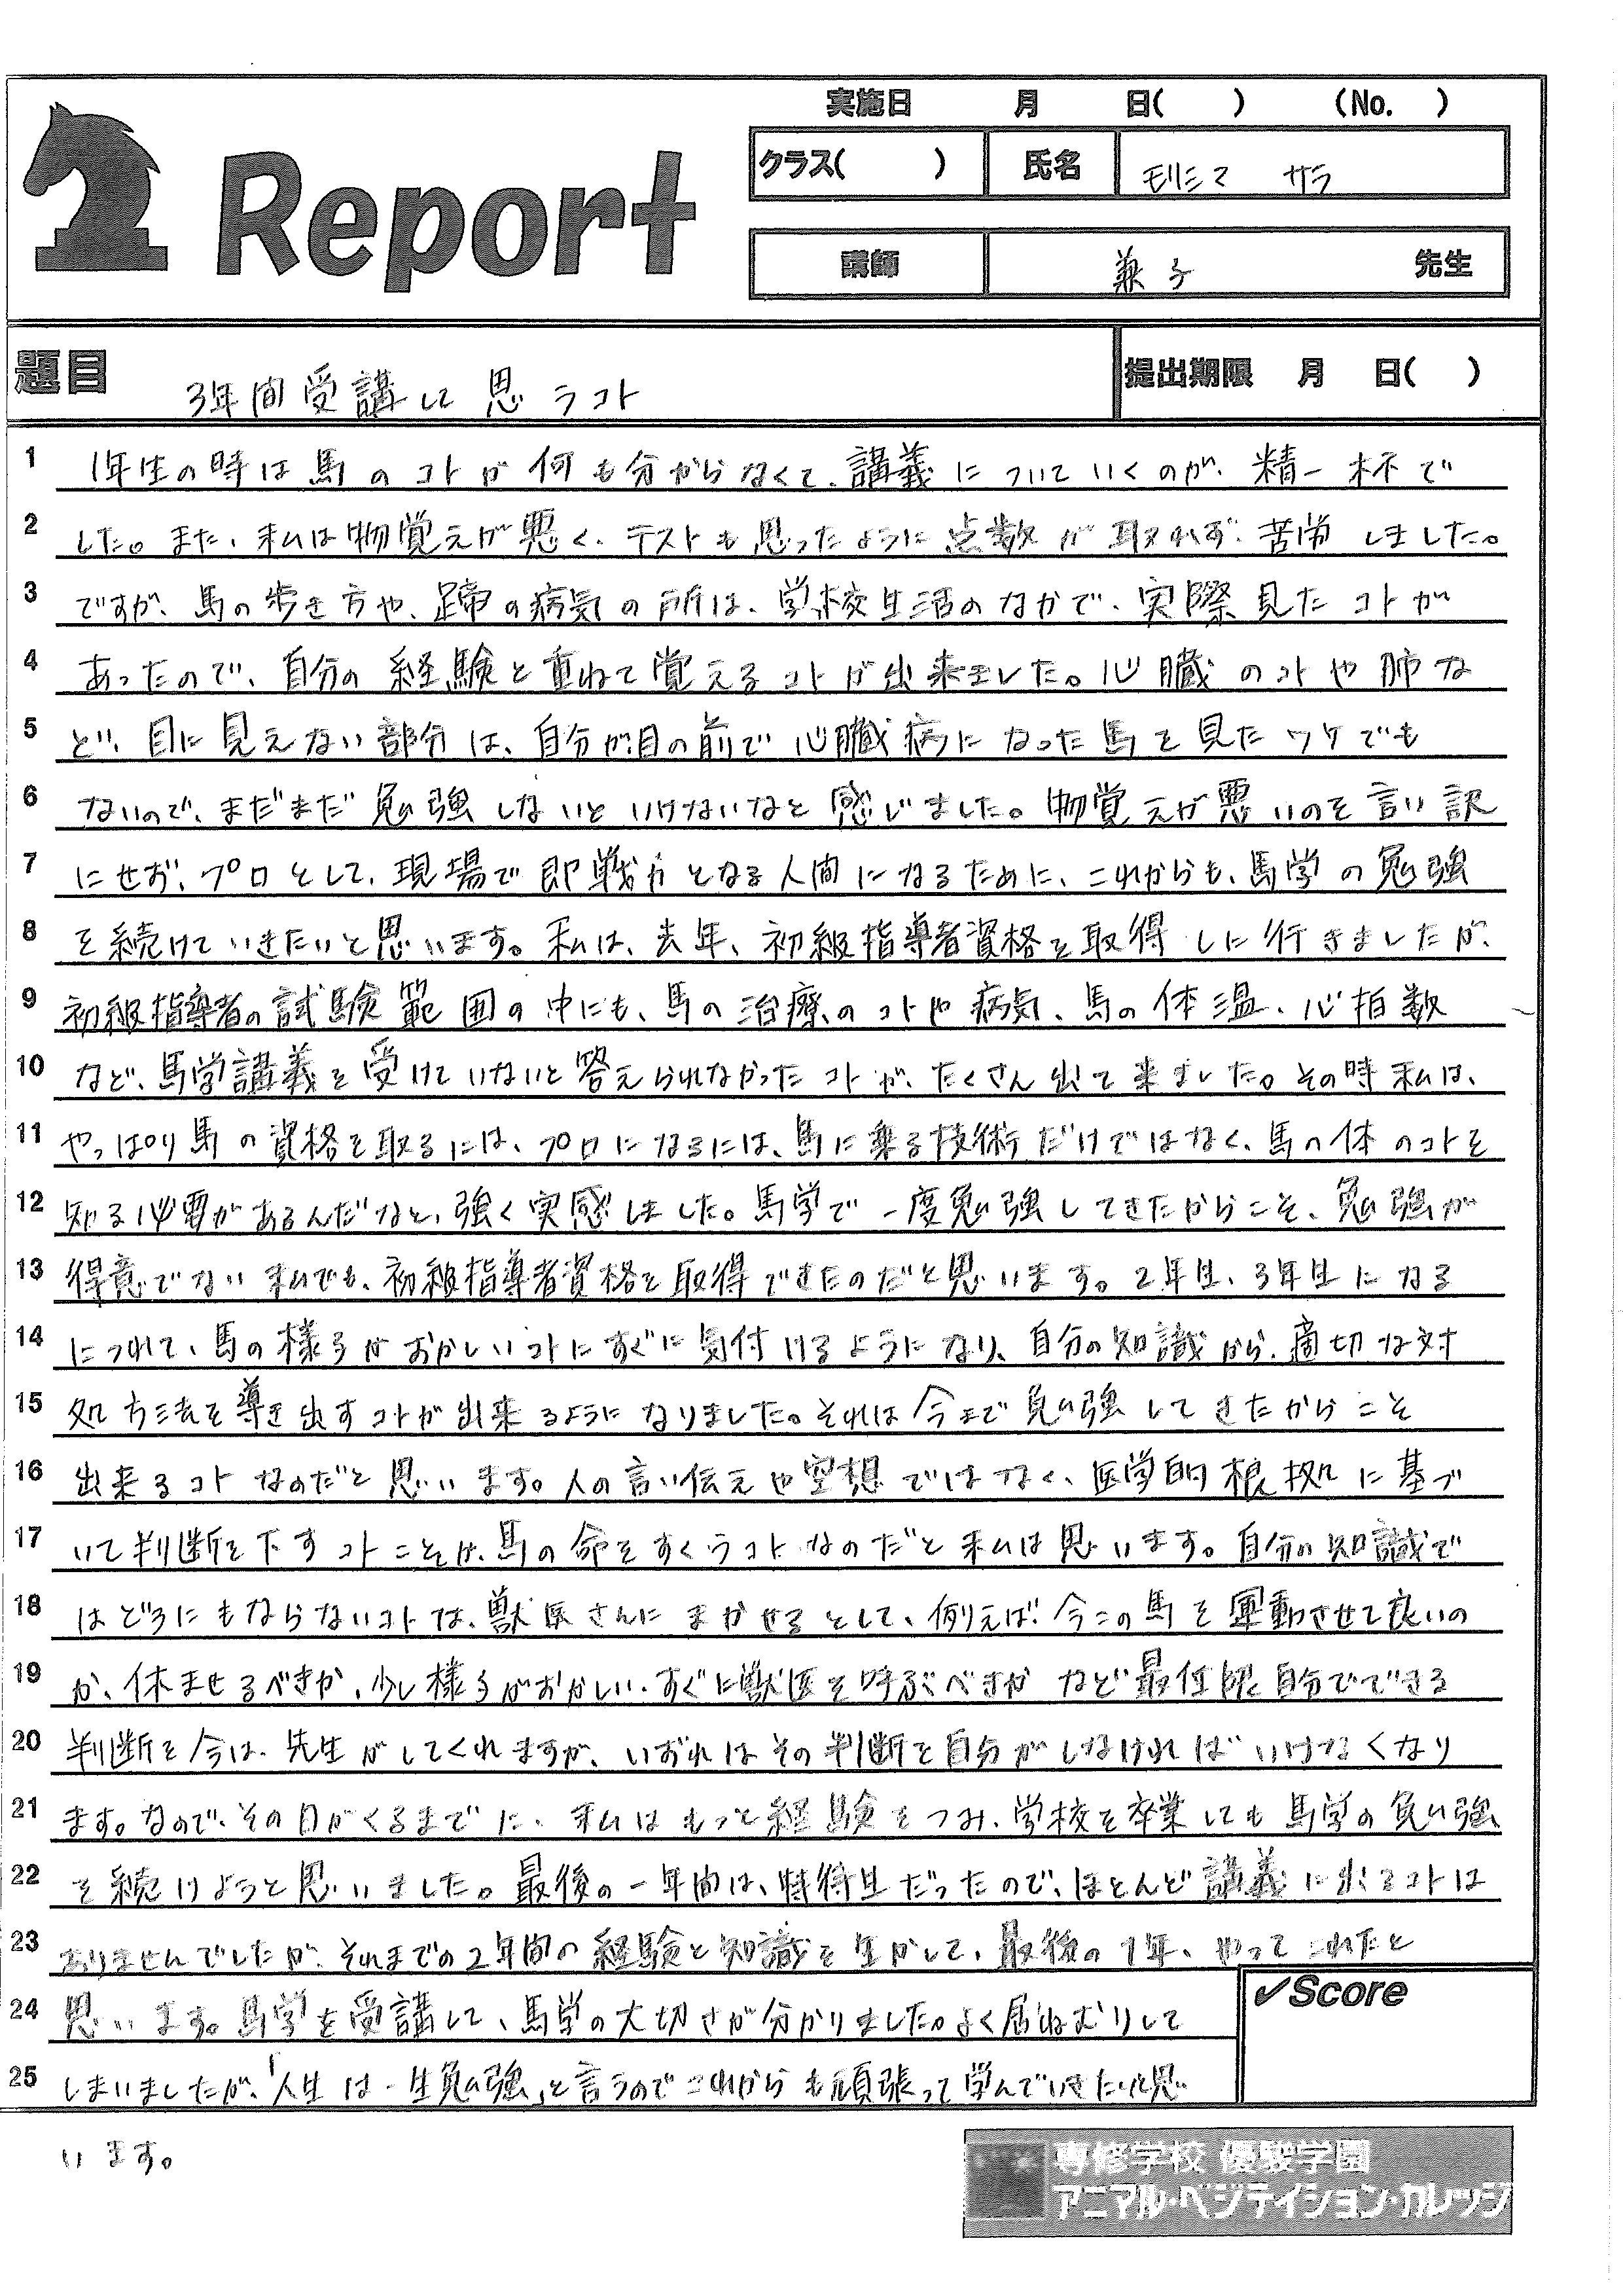 実施日　月　日(　)　(No.　)
Report
クラス(　)　氏名　モリシマ　サラ
講師　兼子　先生
題目　3年間受講して思うコト　提出期限　月　日(　)
1 1年生の時は馬のコトが何も分からなくて、講義についていくのが、精一杯で
2 した。また、私は物覚えが悪く、テストも思ったように点数が取れず、苦労しました。
3 ですが、馬の歩き方や、蹄の病気の所は、学校生活のなかで、実際見たコトが
4 あったので、自分の経験と重ねて覚えるコトが出来ました。心臓のコトや肺な
5 ど、目に見えない部分は、自分が目の前で心臓病になった馬を見たワケでも
6 ないので、まだまだ勉強しないといけないなと感じました。物覚えが悪いのを言い訳
7 にせず、プロとして、現場で即戦力となる人間になるために、これからも、馬学の勉強
8 を続けていきたいと思います。私は、去年、初級指導者資格を取得しに行きましたが、
9 初級指導者の試験範囲の中にも、馬の治療のコトや病気、馬の体温、心拍数
10 など、馬学講義を受けていないと答えられなかったコトが、たくさん出て来ました。その時私は、
11 やっぱり馬の資格を取るには、プロになるには、馬に乗る技術だけではなく、馬の体のコトを
12 知る必要があるんだなと、強く実感しました。馬学で一度勉強してきたからこそ、勉強が
13 得意でない私でも、初級指導者資格を取得できたのだと思います。2年生、3年生になる
14 につれて、馬の様子がおかしいコトにすぐに気付けるようになり、自分の知識から、適切な対
15 処方法を導き出すコトが出来るようになりました。それは今まで勉強してきたからこそ
16 出来るコトなのだと思います。人の言い伝えや空想ではなく、医学的根拠に基づ
17 いて判断を下すコトこそが、馬の命をすくうコトなのだと私は思います。自分の知識で
18 はどうにもならないコトは、獣医さんにまかせるとして、例えば、今この馬を運動させて良いの
19 か、休ませるべきか、少し様子がおかしい、すぐに獣医を呼ぶべきかなど最低限自分でできる
20 判断を今は、先生がしてくれますが、いずれはその判断を自分がしなければいけなくなり
21 ます。なので、その日がくるまでに、私はもっと経験をつみ、学校を卒業しても馬学の勉強
22 を続けようと思いました。最後の一年間は、特待生だったので、ほとんど講義に出るコトは
23 ありませんでしたが、それまでの2年間の経験と知識を生かして、最後の1年、やってこれたと
24 思います。馬学を受講して、馬学の大切さが分かりました。よく居ねむりして
✓Score
25 しまいましたが、「人生は一生勉強」と言うのでこれからも頑張って学んでいきたいと思
います。
専修学校 優駿学園
アニマル・ベジテイション・カレッジ